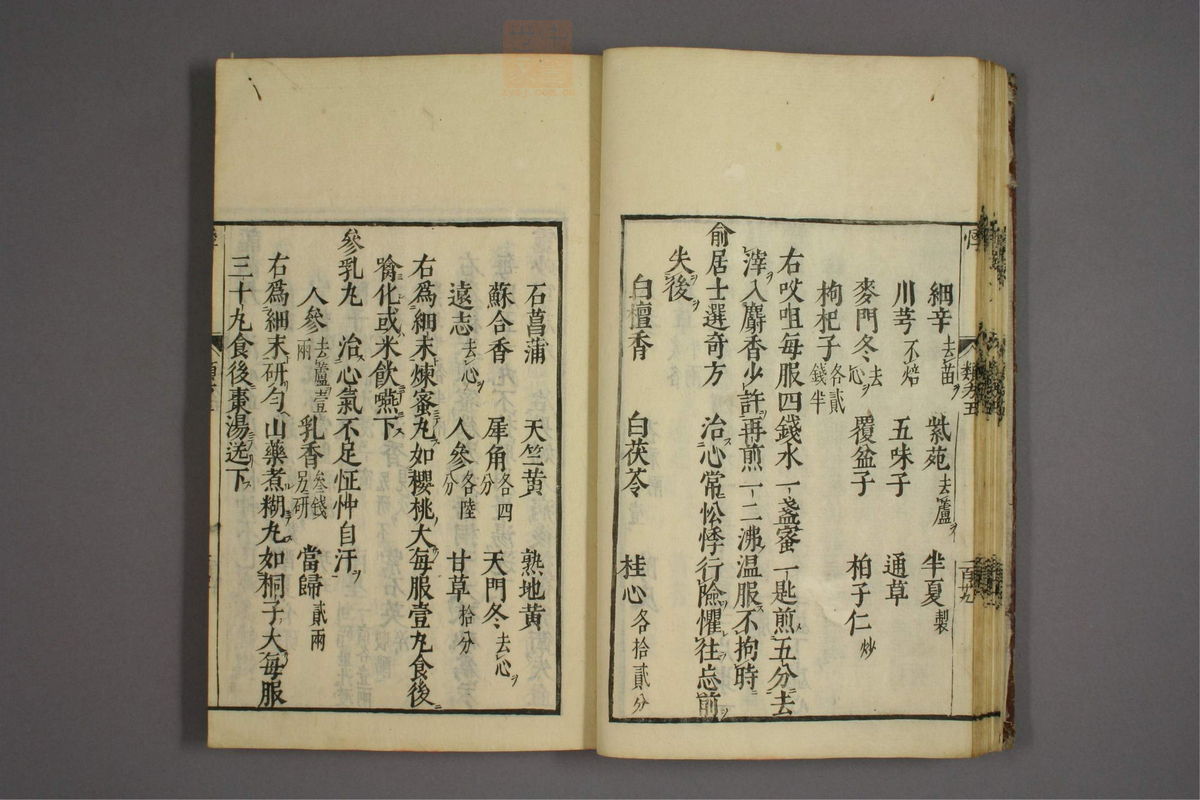 細辛去苗 紫苑去蘆 半夏製
川芎不焙 五味子 通草
麥門冬去心 覆盆子 柏子仁炒
枸杞子各貳錢半
右㕮咀每服四錢水一盞蜜一匙煎五分去
滓入麝香少許再煎一二沸温服不拘時
俞居士選奇方 治心常忪悸行險懼往忘前
失後
白檀香 白茯苓 桂心各拾貳分
石菖蒲 天竺黄 熟地黄
蘇合香 犀角各四分 天門冬去心
遠志去心 人參各陸分 甘草拾分
右爲細末煉蜜丸如櫻桃大每服壹丸食後
噙化或米飲嚥下
參乳丸 治心氣不足怔忡自汗
人參去蘆壹兩 乳香叄錢另研 當歸貳兩
右爲細末研勻山藥煮糊丸如桐子大每服
三十丸食後棗湯送下